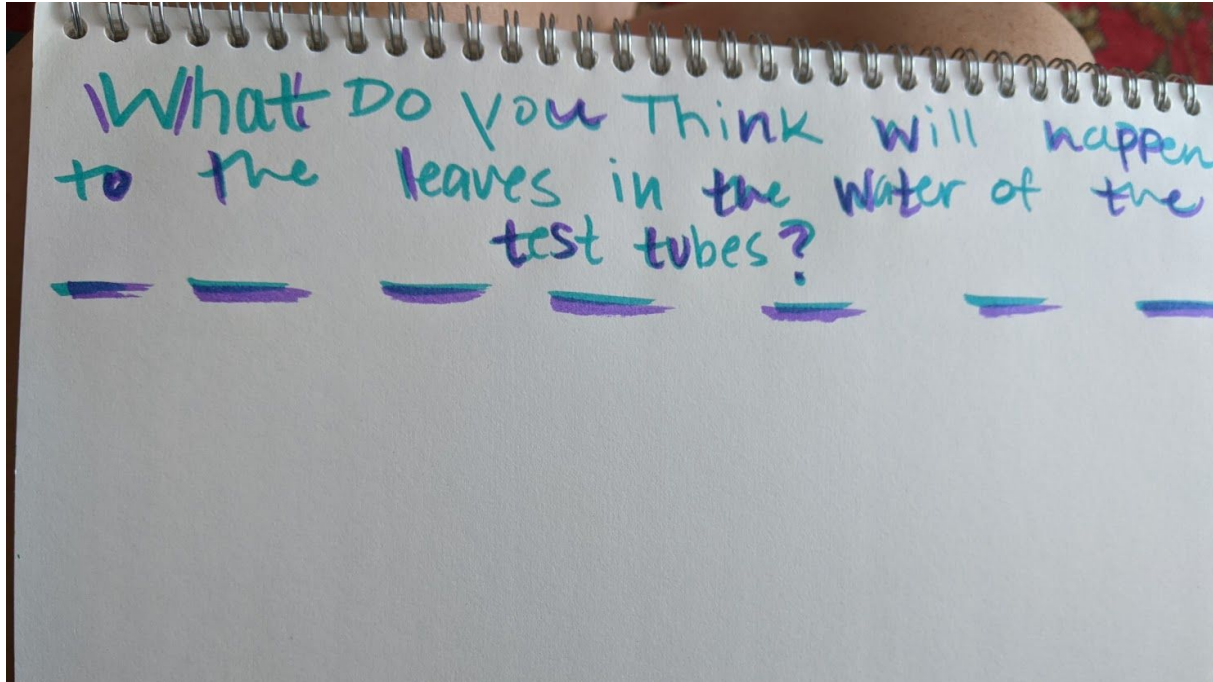 What Do you Think will happen
to the leaves in the water of the
test tubes?